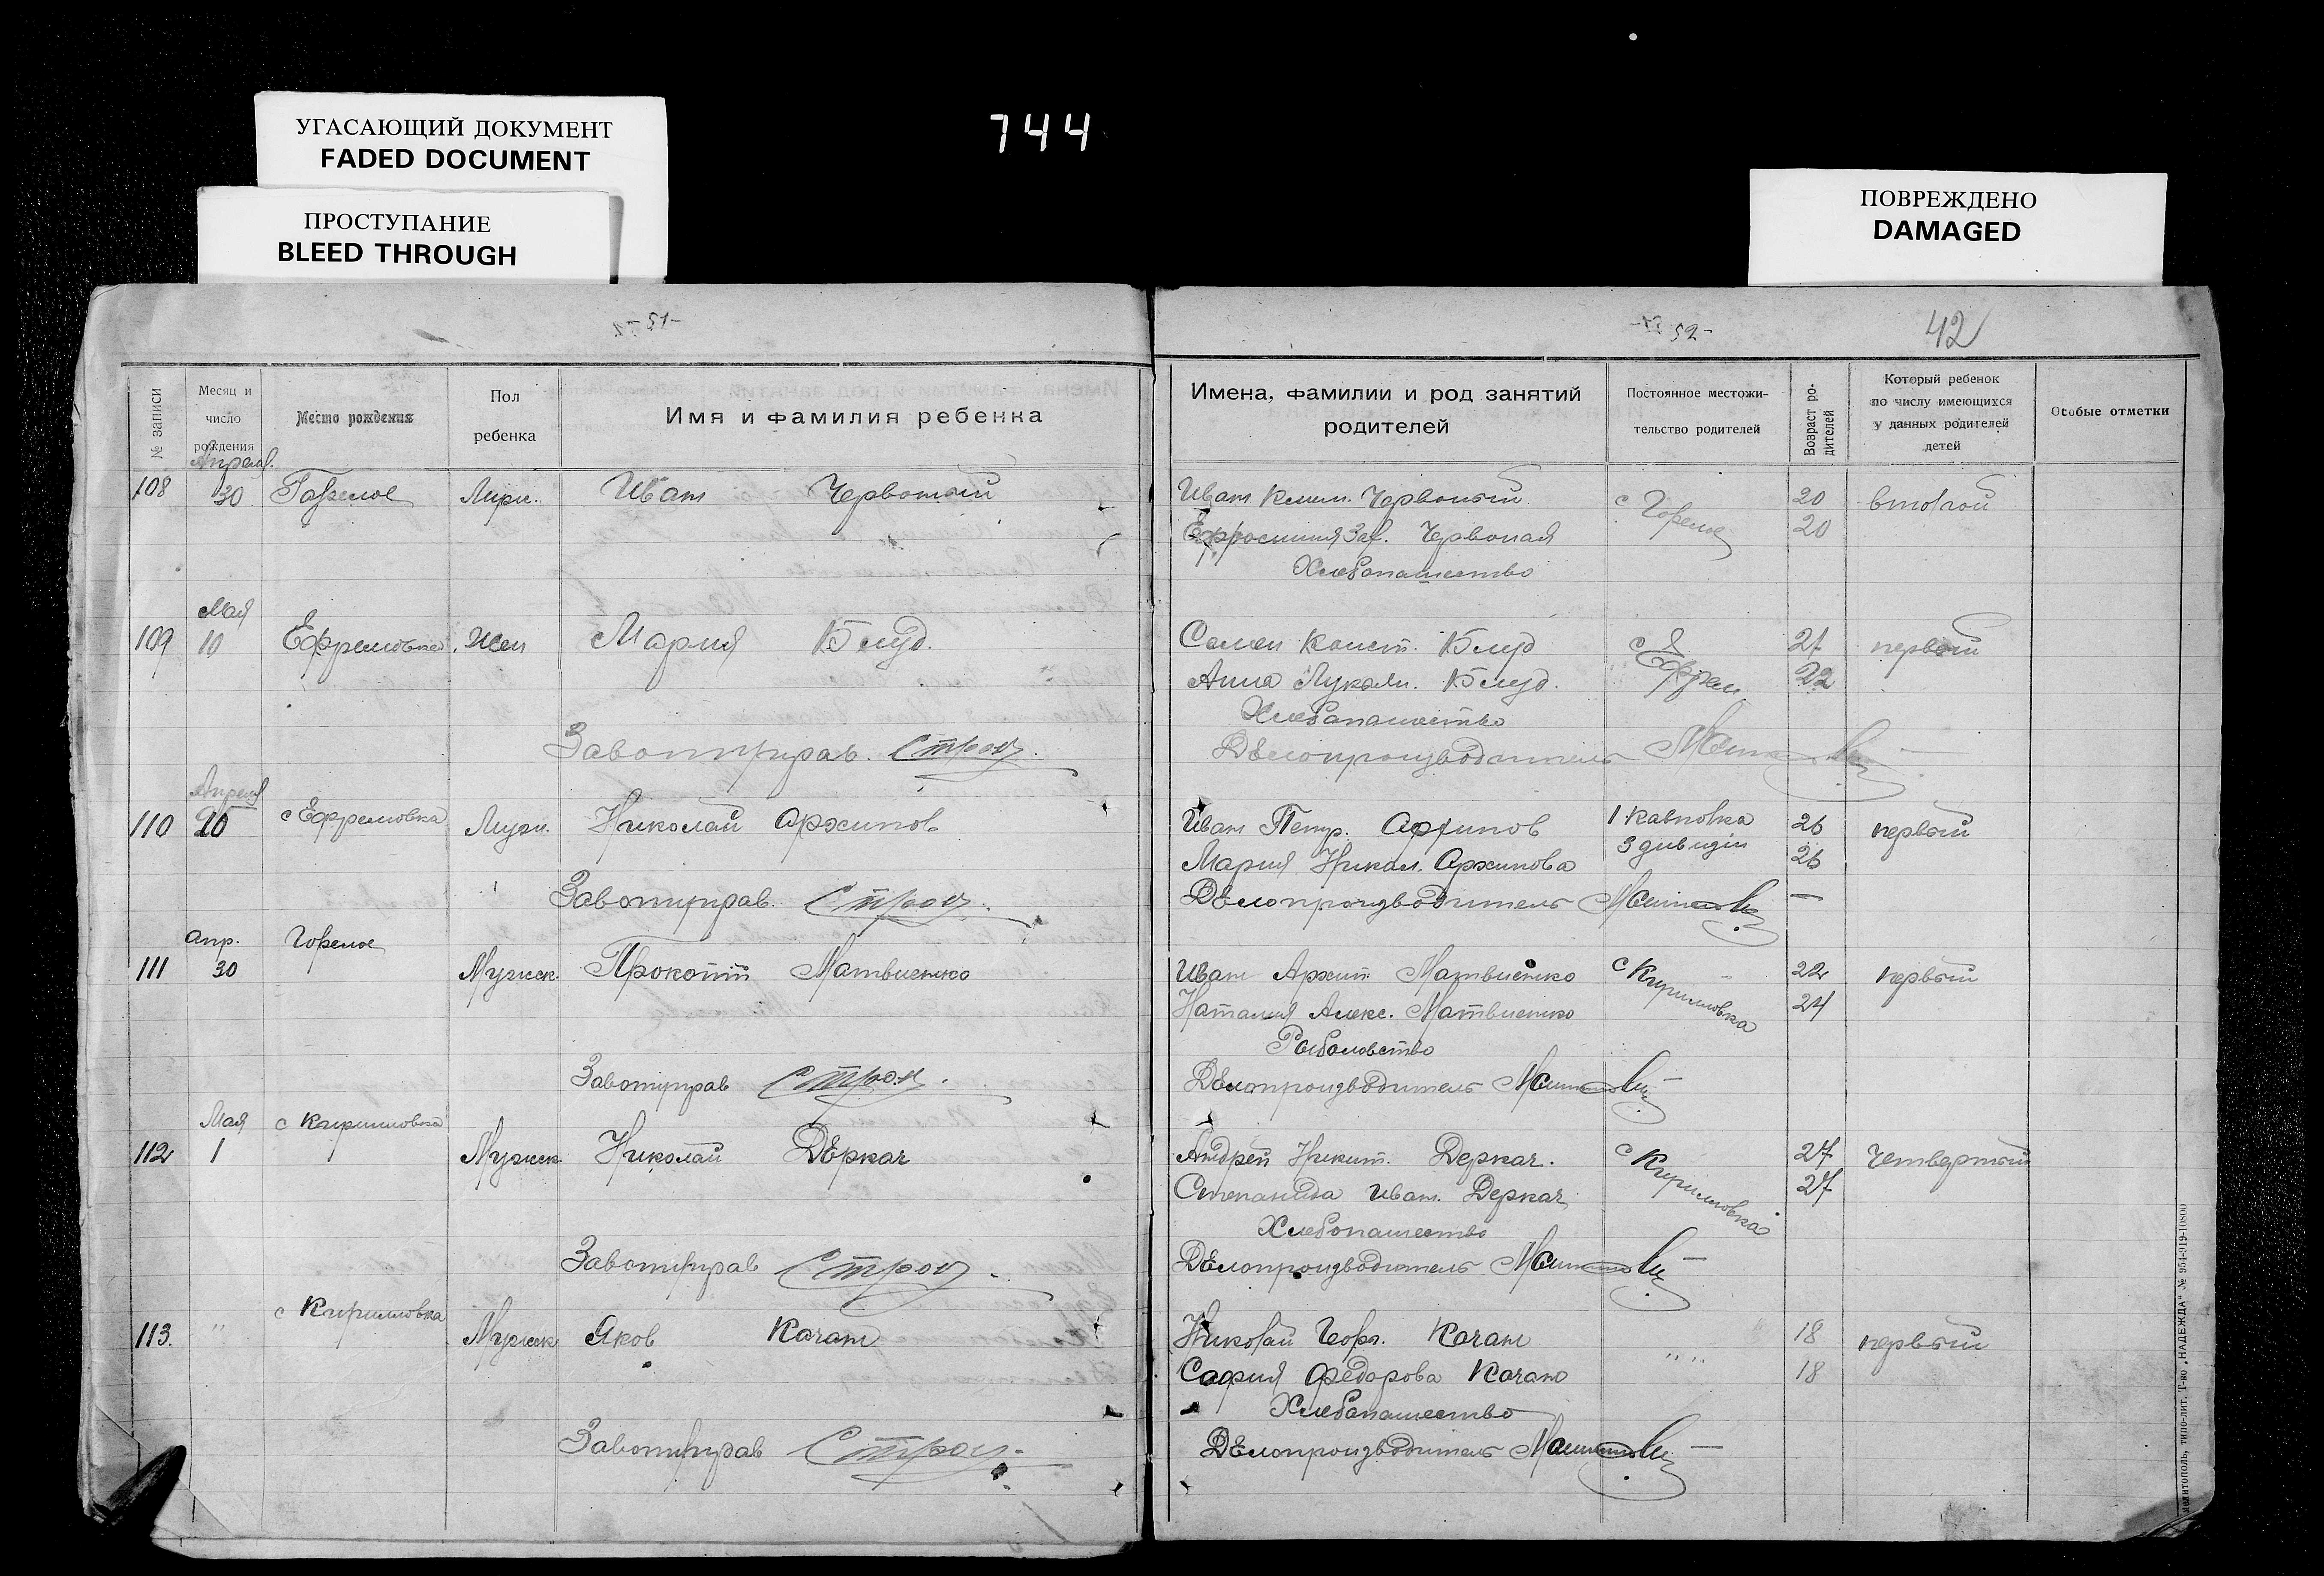 744
УГАСАЮЩИЙ ДОКУМЕНТ
FADED DOCUMENT
ПРОСТУПАНИЕ
BLEED THROUGH
ПОВРЕЖДЕНО
DAMAGED
51-
52-
42
№ записи
Месяц и число рождения
Место рождения
Пол ребенка
Имя и фамилия ребенка
Имена, фамилии и род занятий родителей
Постоянное местожительство родителей
Возраст родителей
Который ребенок по числу имеющихся у данных родителей детей
Особые отметки
Апреля
108 30 Горелое Иван Червоный Иван Клим. Червоный с Горелое 20 второй
Ефросиния Зах. Червоная 20
Хлебопашество
Мая
109 10 Ефремовка Жен Мария Блуд. Семен Конст. Блуд с Ефрем 21 первый
Анна Лукян. Блуд. 22
Хлебопашество
Завотуправ. Делопроизводитель
Апреля
110 20 с Ефремовка Мужс. Николай Архипов Иван Петр. Архипов 26 первый
Мария Никол. Архипова 26
Завотуправ. Делопроизводитель
апр. Горелое
111 30 Мужск. Прокопп Матвиенко Иван Архип Матвиенко с Кирилловка 22 первый
Наталия Алекс. Матвиенко 24
Рыболовство
Завотуправ Делопроизводитель
Мая с Кирилловка
112 1 Мужск. Николай Деркач Андрей Никит. Деркач. с Кирилловка 27 Четвертый
Степанида Иван. Деркач 27
Хлебопашество
Завотуправ Делопроизводитель
с Кирилловка
113. " Мужск Яков Качан Николай Георг. Качан " " 18 первый
София Федорова Качано 18
Хлебопашество
Завотуправ Делопроизводитель
мелитополь, типо-лит. Т-во „НАДЕЖДА" № 954-919-10800